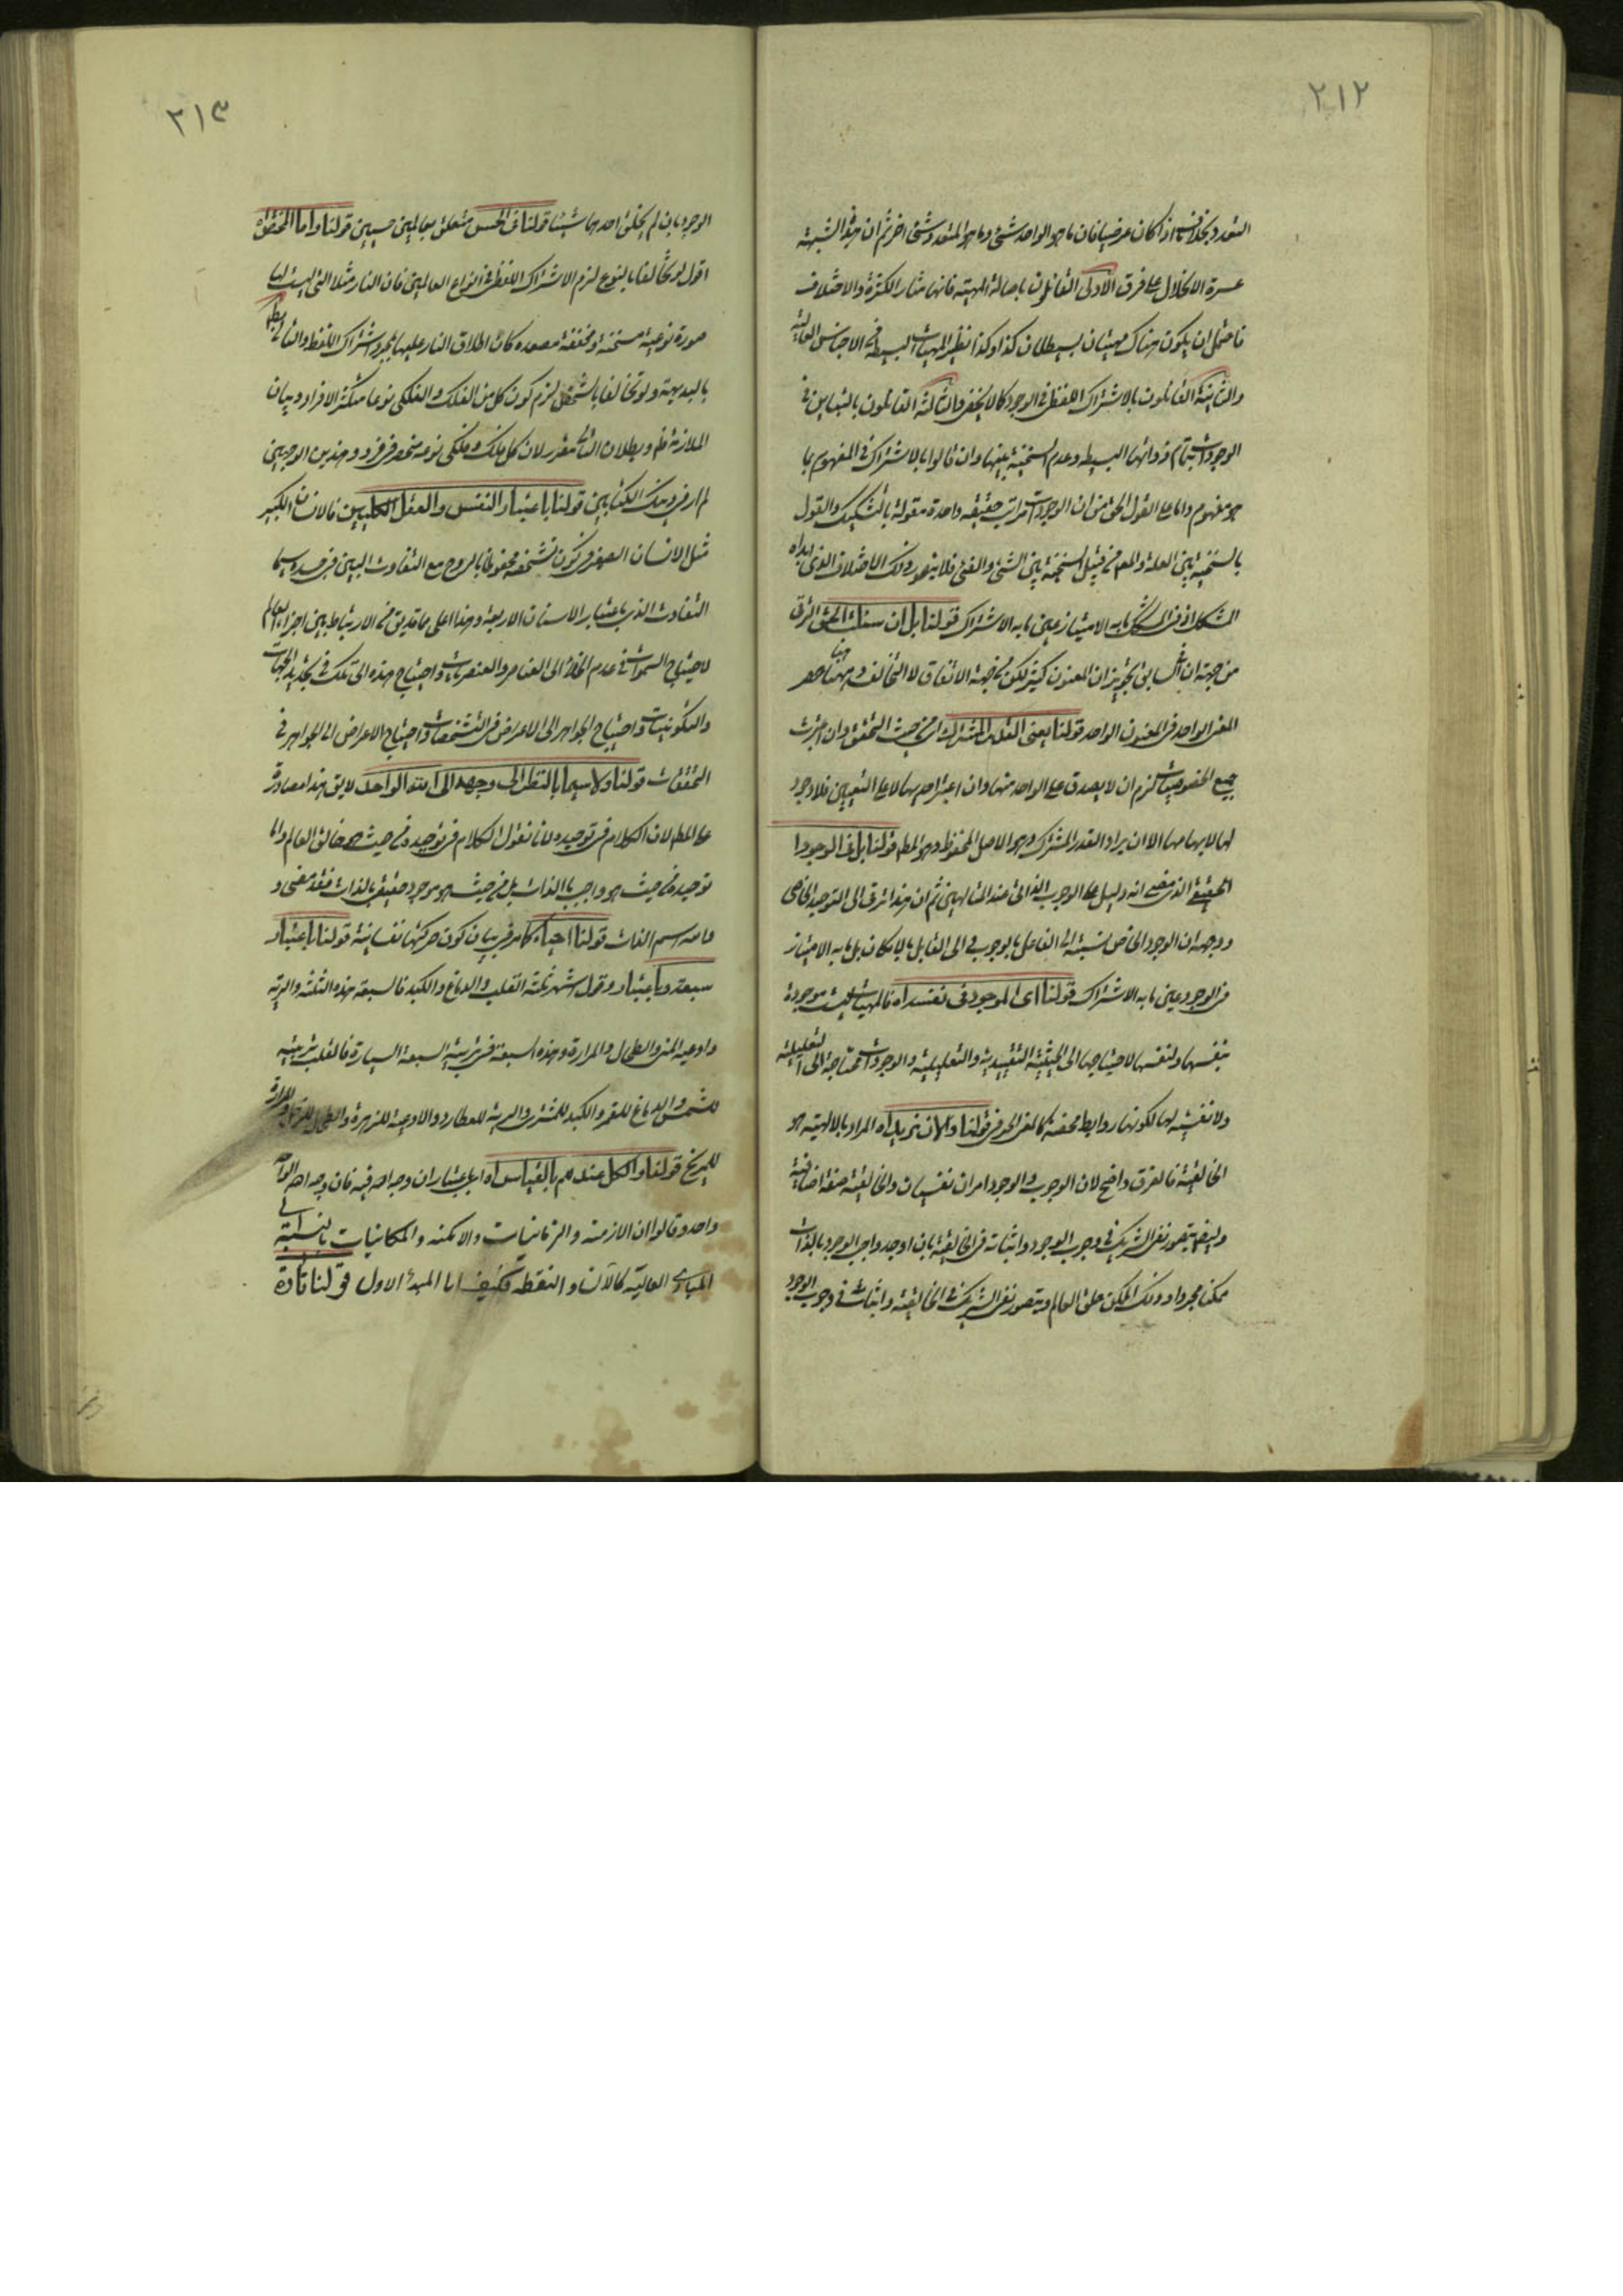 ٢١٢
التعدد بخلافه اذا كان عرضيا فان ما هو الواحد شئ وما هو المتعدد شئ اخر ثم ان هذه الشبهة
عسرة الانحلال على فرق الاولى القائلون باصالة المهية فانها مثار الكثرة والاختلاف
فاحتمل ان يكون هناك مهيتان بسيطتان كذا وكذا نظير المهيات البسيطة فى الاجناس العالية
والثانية القائلون بالاشتراك اللفظى فى الوجود كما لا يخفى والثالثة القائلون بالتباين فى
الوجودات بتمام ذواتها البسيطه وعدم السنخية بينها وان قالوا بالاشتراك فى المفهوم بما
هو مفهوم واما على القول الحق من ان الوجودات مراتب حقيقه واحدة مقولة بالتشكيك والقول
بالسنخية بين العلة والمعلول من قبيل السنخية بين الشئ والفئ فلا يتصور ذلك الاختلاف الذى ابداه
المشكك اذ فى المشكك ما به الامتياز عين ما به الاشتراك قولنا بل ان سئلت الحق الترقى
من جهة ان السابق تجويز ان المعنون كثير لكن من جهة الاتفاق لا التخالف وههنا حصر
المعنى الواحد فى المعنون الواحد قولنا يعنى القدر المشترك اى من حيث التحقق وان اعتبرت
جميع الخصوصيات لزم ان لا يصدق على الواحد منها وان اعتبر احديها لا على التعيين فلا وجود
لها لابهامها الا ان يراد القدر المشترك وهو الاصل المحفوظ وهو المطلوب قولنا بل فى الوجود ا
الحقيقى الذى مضى انه دليل على الوجوب الذاتى عند المتالهين ثم ان هذا ترقى الى التوحيد الخاصى
ووجهه ان الوجود الخاص نسبته الى الفاعل بالوجوب وفى الى القابل بالامكان بل ما به الامتياز
فى الوجود عين ما به الاشتراك قولنا اى الموجود فى نفسه اه فالمهيات ليست موجودة
بنفسها ولنفسها لاحتياجها الى الحيثية التقييدية والتعليلية والوجودات محتاجة الى التعليلية
ولا نفسية لها لكونها روابط محضه كالمعنى الحرفى قولنا والان نريد اه المراد بالالهية هو
الخالقية فالفرق واضح لان الوجوب والوجود امران نفسيان والخالقية صفة اضافية
وايضا يتصور نفى الشريك فى وجوب الوجود واثباته فى الخالقية بان اوجد واجب الوجود بالذات
ممكنا مجردا وذلك الممكن خلق العالم ويتصور نفى الشريك فى الخالقية واثباته فى وجوب الوجود
٢١٣
الوجود بان لم يخلق احدهما شيئا قولنا فى الحس متعلق بعالمين حسيين قولنا واما المحقق اه
اقول لو تخالفا بالنوع لزم الاشتراك اللفظى فى انواع العالمين فان النار مثلا التى ليست لها
صورة نوعية مسخنة ومخففة مصعده كان اطلاق النار عليها بمجرد اشتراك اللفظ والتالى باطل
بالبديهة ولو تخالفا بالشخص لزم كون كل من الفلك والفلكى نوعا متكثر الافراد وبيان
الملازمة ظ وبطلان التالى مقرر لان كل فلك وفلكى نوعه منحصر فى فرد وهذين الوجهين
لم ار فى ذينك الكتابين قولنا باعتبار النفس والعقل الكليين فالانسان الكبير
مثل الانسان الصغير فى كون تشخصه محفوظا بالروح مع التفاوت البين فى جسده سيما
التفاوت الذى باعتبار الاسنان الاربعة وهذا على ما قد يق من الارتباط بين اجزاء العالم
لاحتياج السموات فى عدم الخلاء الى العناصر والعنصريات واحتياج هذه الى تلك فى تجديد الجهات
والتكوينيات واحتياج الجواهر الى الاعراض فى التشخصات واحتياج الاعراض الى الجواهر فى
التحققات قولنا ولاسيما بالنظر الى وجهه الى الله الواحد لا يق هذا مصادرة
على المطلوب لان الكلام فى توحيده لانا نقول الكلام فى توحيده من حيث هو خالق العالم واما
توحيده من حيث هو واجب بالذات بل من حيث هو موجود حقيقى بالذات فقد مضى و
ما مه اسم الذات قولنا احياء كما مر فى بيان كون حركتها نفسانية قولنا باعتبار
سبعة وباعتبار وقول اشهر ثلثة القلب والدماغ والكبد فالسبعة هذه الثلثة والرية
واوعية المنى والطحال والمرارة وهذه السبعة فى تربية السبعة السيارة فالقلب تربيته
للشمس والدماغ للقمر والكبد للمشترى والرية للعطارد والاوعية للزهرة والطحال للزحل والمرارة
للمريخ قولنا والكل عندهم بالقياس اه اى باعتبار ان وجه الله فيه فان وجه الله الواحد
واحد وقالوا ان الازمنة والزمانيات والامكنه والمكانيات بالنسبة الى
المبادى العالية كالآن والنقطه فكيف اما المبدء الاول قولنا تارة